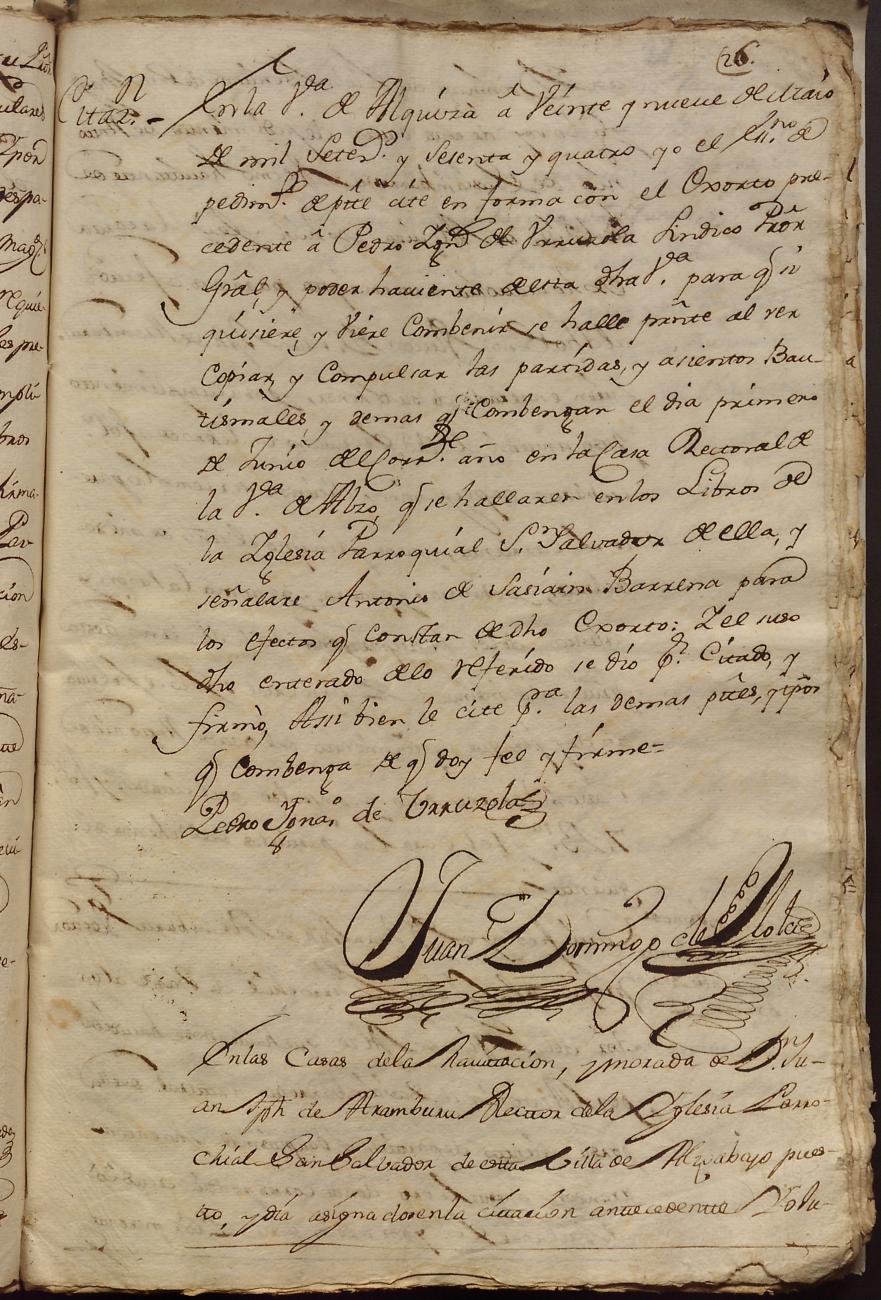 26.
Citaz.ⁿ - En la V.ª de Alquiza â Veinte y nueve de Maio
de mil Seteᵈ.ˢ y Sesenta y quatro yo el Ess.ⁿᵒ de
pedim.ᵗᵒ de pᵗᵉ cité en forma con el Exorto pre-
cedente â Pedro Ygnᵒ de Urruzola Sindico Proᵣ
Grâl, y poder haviente de esta dha V.ª para q̄ si
quisiere, y viere Combenir se halle prñte al ver
Copiar, y Compulsar las partidas, y asientos Bau-
tismales, y demas q̄ Combengan el dia primero
de Junio del Corr.ᵗᵉ año en la Casa Rectoral de
la V.ª de Albzo, q̄ se hallaren en los Libros de
la Yglesia Parroquial S.ⁿ Salvador de ella, y
señalare Antonio de Sasiain Barrena para
los efectos q̄ Constan de dho Exorto: Y el suso
dho enterado de lo referido se dio p.ʳ Citado, y
firmò, Assi bien le cite p.ª las demas ptēs, y tpōs
q̄ Combenga de q̄ doy fee y firme=
Pedro Ignaᵒ de Urruzola
Juan Domingo de
En las Casas de la havitacion, y morada de D.ⁿ Ju-
an Jph de Aramburu Rector de la Yglesia Parro-
chial San Salvador de esta Villa de Alzo abajo pues-
to, y dia asignado en la citacion antecedente Yo Ju-